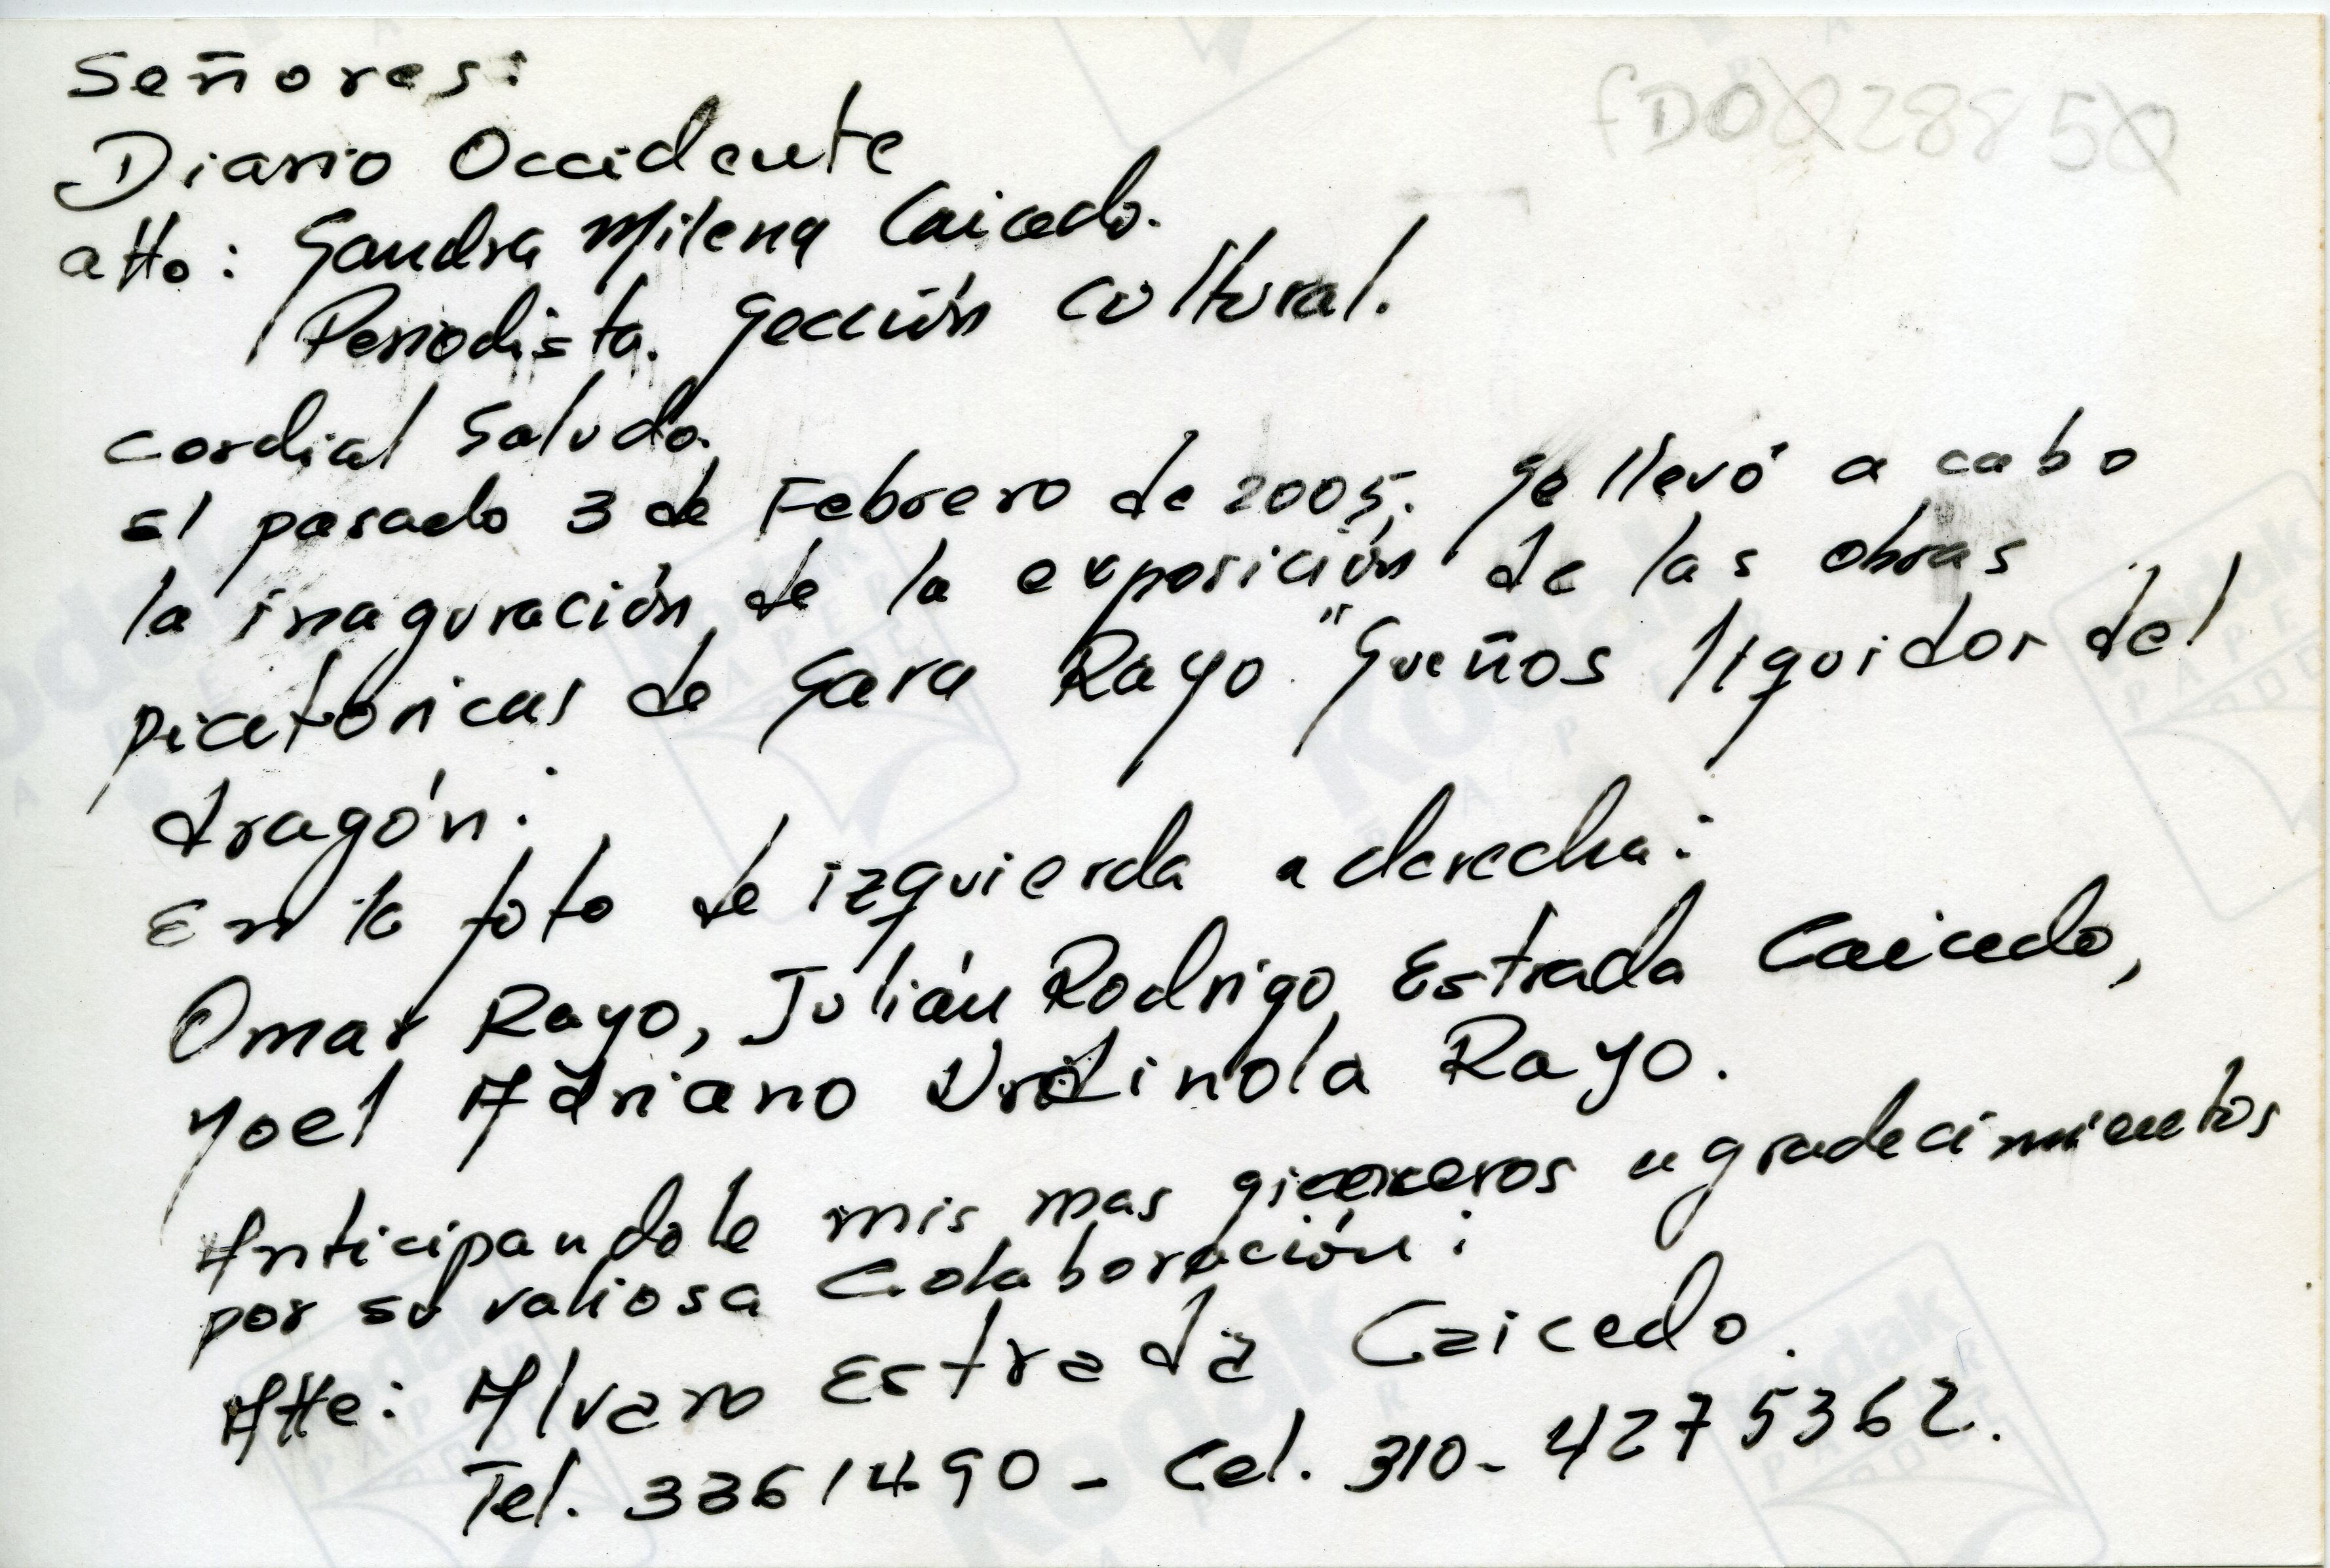 Señores:
fDO028850
Diario Occidente
atto: Sandra Milena Caicedo.
Periodista. Sección Cultural.
Cordial Saludo.
El pasado 3 de Febrero de 2005. Se llevó a cabo
la inaguración de la exposición de las obras
picetóricas de Sara Rayo. "Sueños líquidos del
dragón:
En la foto de izquierda a derecha:
Omar Rayo, Julián Rodrigo Estrada Caicedo,
Yoel Adriano Urdinola Rayo.
Anticipandole mis mas agradecimientos
por su valiosa Colaboración:
Atte: Alvaro Estrada Caicedo.
Tel. 3361490 - Cel. 310-4275362.
Kodak
PAPER